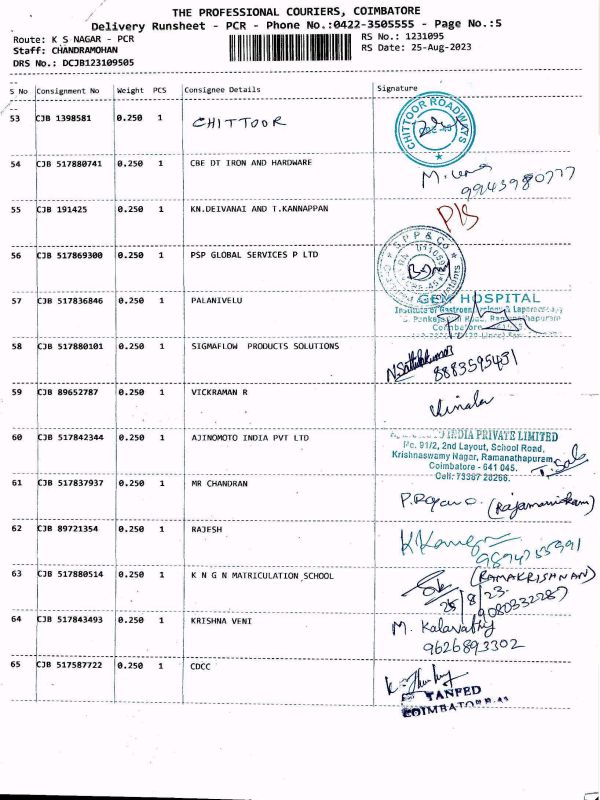 THE PROFESSIONAL COURIERS, COIMBATORE
Delivery Runsheet - PCR - Phone No.:0422-3505555 - Page No.:5
Route: K S NAGAR - PCR
RS No.: 1231095
Staff: CHANDRAMOHAN
RS Date: 25-Aug-2023
DRS No.: DCJB123109505
S No Consignment No Weight PCS Consignee Details Signature
53 CJB 1398581 0.250 1 CHITTOOR
CHITTOOR ROADWAYS
54 CJB 517880741 0.250 1 CBE DT IRON AND HARDWARE
M.
9943980777
55 CJB 191425 0.250 1 KN.DEIVANAI AND T.KANNAPPAN
56 CJB 517869300 0.250 1 PSP GLOBAL SERVICES P LTD
S P P & Co
57 CJB 517836846 0.250 1 PALANIVELU
GEM HOSPITAL
Institute of Gastroenterology & Laparoscopy
Ramanathapuram
Coimbatore
58 CJB 517880101 0.250 1 SIGMAFLOW PRODUCTS SOLUTIONS
8883595431
59 CJB 89652787 0.250 1 VICKRAMAN R
Vimala
60 CJB 517842344 0.250 1 AJINOMOTO INDIA PVT LTD
INDIA PRIVATE LIMITED
No. 91/2, 2nd Layout, School Road,
Krishnaswamy Nagar, Ramanathapuram,
Coimbatore - 641 045.
Cell: 73387 28266.
61 CJB 517837937 1 MR CHANDRAN
0.250
(Rajamanickam)
62 CJB 89721354 0.250 1 RAJESH
63 CJB 517880514 0.250 1 K N G N MATRICULATION SCHOOL
(RAMAKRISHNAN)
25/8/23
9080332287
64 CJB 517843493 0.250 1 KRISHNA VENI
M. Kalavathy
9626893302
65 CJB 517587722 0.250 1 CDCC
TANFED
COIMBATORE